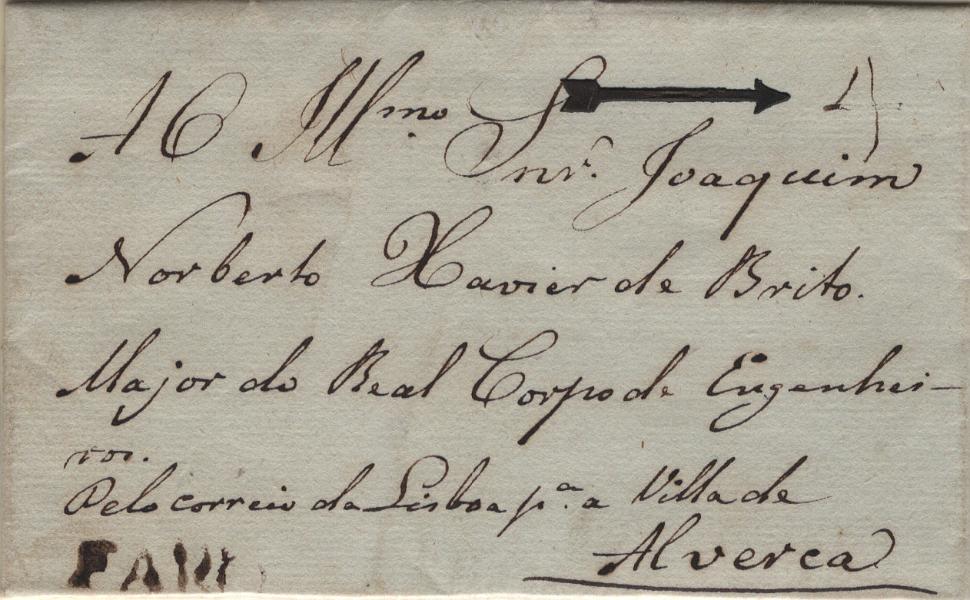 AO Illmo. Snr. Joaquim
Norberto Xavier de Brito.
Major do Real Corpo de Engenhei-
ros.
Pelo correio da Lisboa pa. a Villa de
Alverca